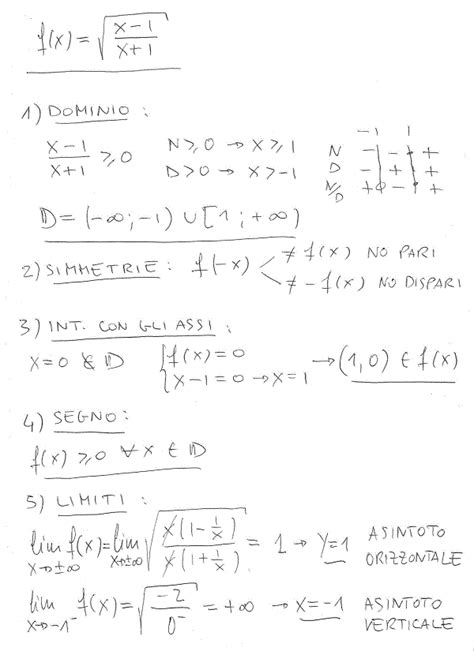 f(x) = √((x-1)/(x+1))
1) DOMINIO :
(x-1)/(x+1) ⩾ 0   N ⩾ 0 → x ⩾ 1
D > 0 → x > -1
-1   1
N   -   -   +
D   -   +   +
N/D   +   -   +
D = (-∞; -1) ∪ [1; +∞)
2) SIMMETRIE : f(-x) ≠ f(x) NO PARI
≠ -f(x) NO DISPARI
3) INT. CON GLI ASSI :
x=0 ∉ D   { f(x) = 0
x-1=0 → x=1   → (1,0) ∈ f(x)
4) SEGNO :
f(x) ⩾ 0 ∀ x ∈ D
5) LIMITI :
lim x→±∞ f(x) = lim x→±∞ √(x(1-1/x)/x(1+1/x)) = 1 → y=1 ASINTOTO ORIZZONTALE
lim x→-1⁻ f(x) = √(-2/0⁻) = +∞ → x=-1 ASINTOTO VERTICALE